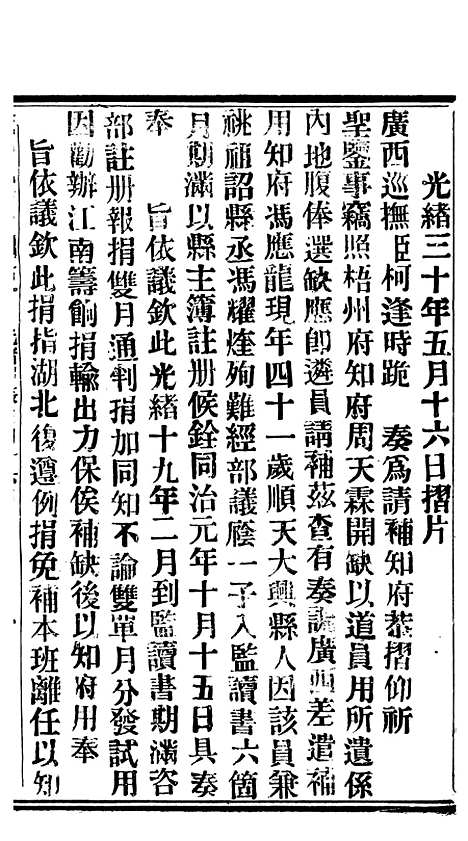 光緒三十年五月十六日摺片
廣西巡撫臣柯逢時跪　奏爲請補知府恭摺仰祈
聖鑒事竊照梧州府知府周天霖開缺以道員用所遺係
內地腹俸選缺應卽遴員請補茲查有奏調廣西差遣補
用知府馮應龍現年四十一歲順天大興縣人因該員兼
祧祖詔縣丞馮耀煃殉難經部議廕一子入監讀書六箇
月期滿以縣主簿註册候銓同治元年十月十五日具奏
奉　旨依議欽此光緒十九年二月到監讀書期滿咨
部註册報捐雙月通判捐加同知不論雙單月分發試用
因勸辦江南籌餉捐輸出力保俟補缺後以知府用奉
旨依議欽此捐指湖北復遵例捐免補本班離任以知